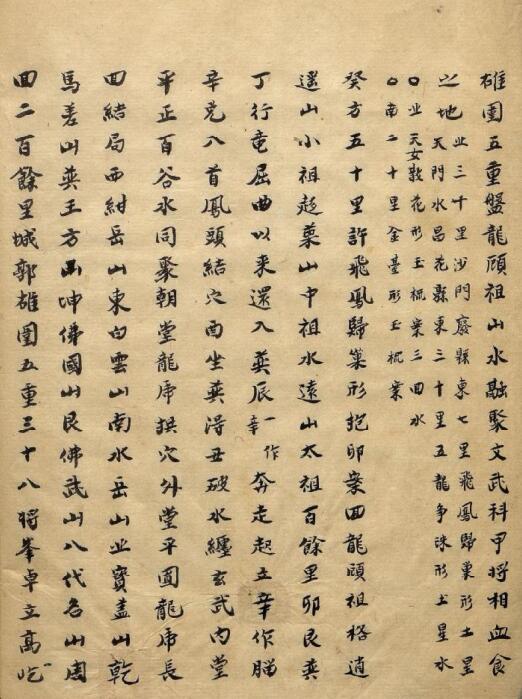 雄圍五重盤龍顧祖山水融聚文武科甲將相血食
之地
北三十里沙門廢縣東七里飛鳳歸巢形土星
天門水昌花縣東三十里五龍爭珠形土星水
○北天女散花形玉梳案三回水
○南二十里金臺形玉梳案
癸方五十里許飛鳳歸巢形抱卵案回龍顧祖格逍
遥山小祖超菓山中祖水遠山太祖百餘里卯艮巽
丁行竜屈曲以来還入巽辰一作辛奔走起立辛作腦
辛兑八首鳳頭結穴酉坐巽得丑破水纏玄武内堂
平正百谷水同聚朝堂龍虎拱穴外堂平圓龍虎長
回結局西紺岳山東白雲山南水岳山北寶盖山乾
馬差山巽王方山坤佛國山艮佛武山八代名山周
回二百餘里城郭雄圍五重三十八將峯卓立高屹